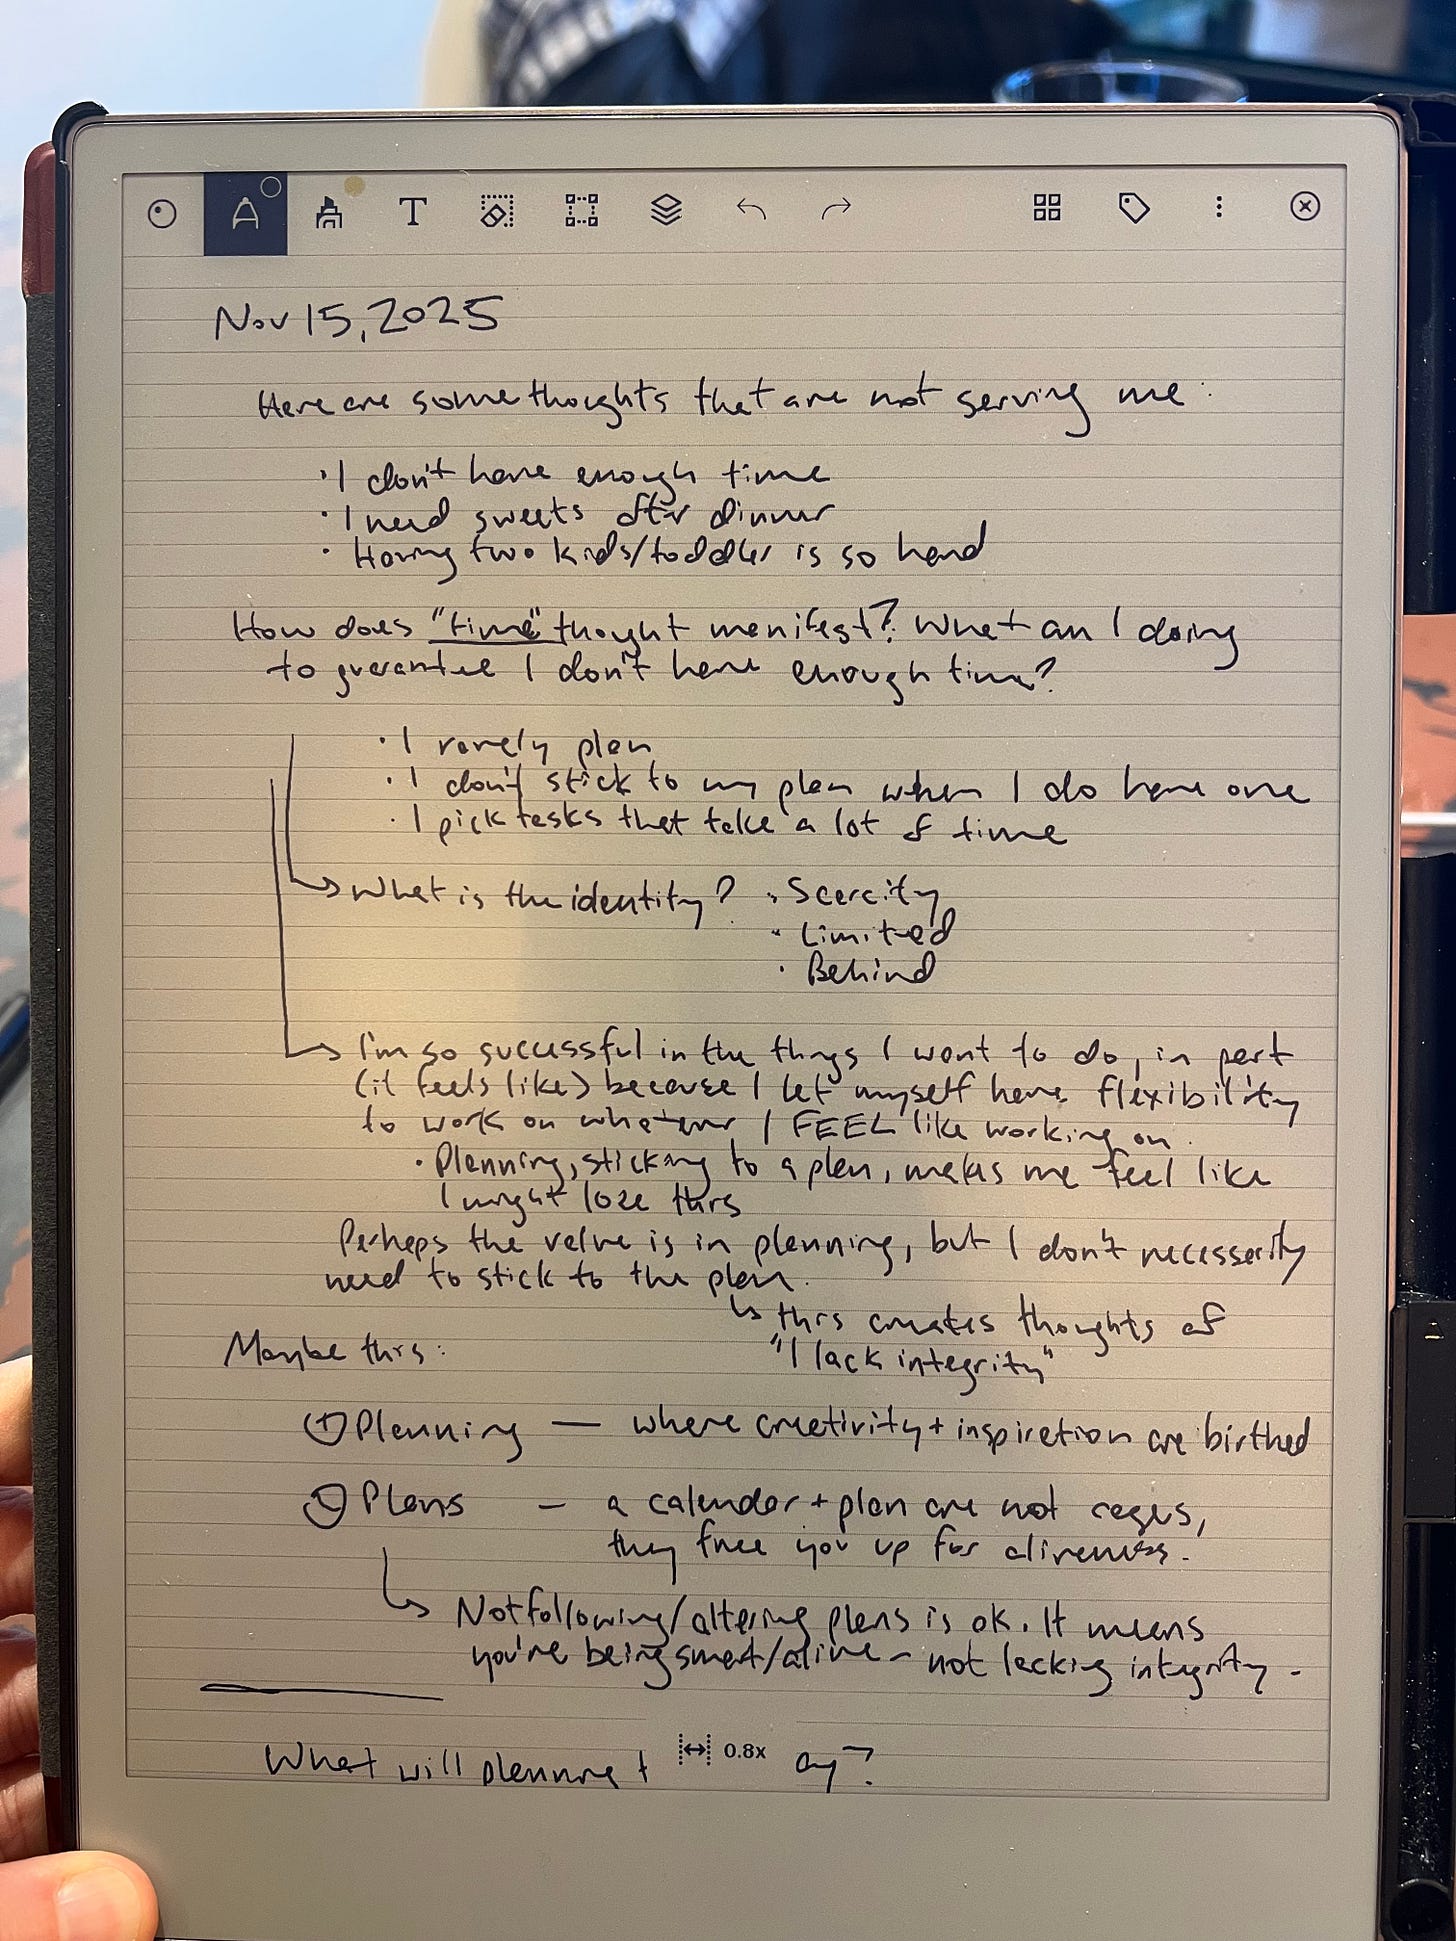 T
Nov 15, 2025
Here are some thoughts that are not serving me:
· I don't have enough time
· I need sweets after dinner
· Having two kids/toddler is so hard
How does "time" thought manifest? What am I doing
to guarantee I don't have enough time?
· I rarely plan
· I don't stick to my plan when I do have one
· I pick tasks that take a lot of time
→ What is the identity? · Scarcity
· Limited
· Behind
→ I'm so successful in the things I want to do, in part
(it feels like) because I let myself have flexibility
to work on whatever I FEEL like working on.
· Planning, sticking to a plan, makes me feel like
I might lose this
Perhaps the value is in planning, but I don't necessarily
need to stick to the plan.
↳ this creates thoughts of
"I lack integrity"
Maybe this:
① Planning — where creativity + inspiration are birthed
② Plans — a calendar + plan are not cages,
they free you up for aliveness.
↳ Not following/altering plans is ok. It means
you're being smart/alive - not lacking integrity.
What will planning
0.8x